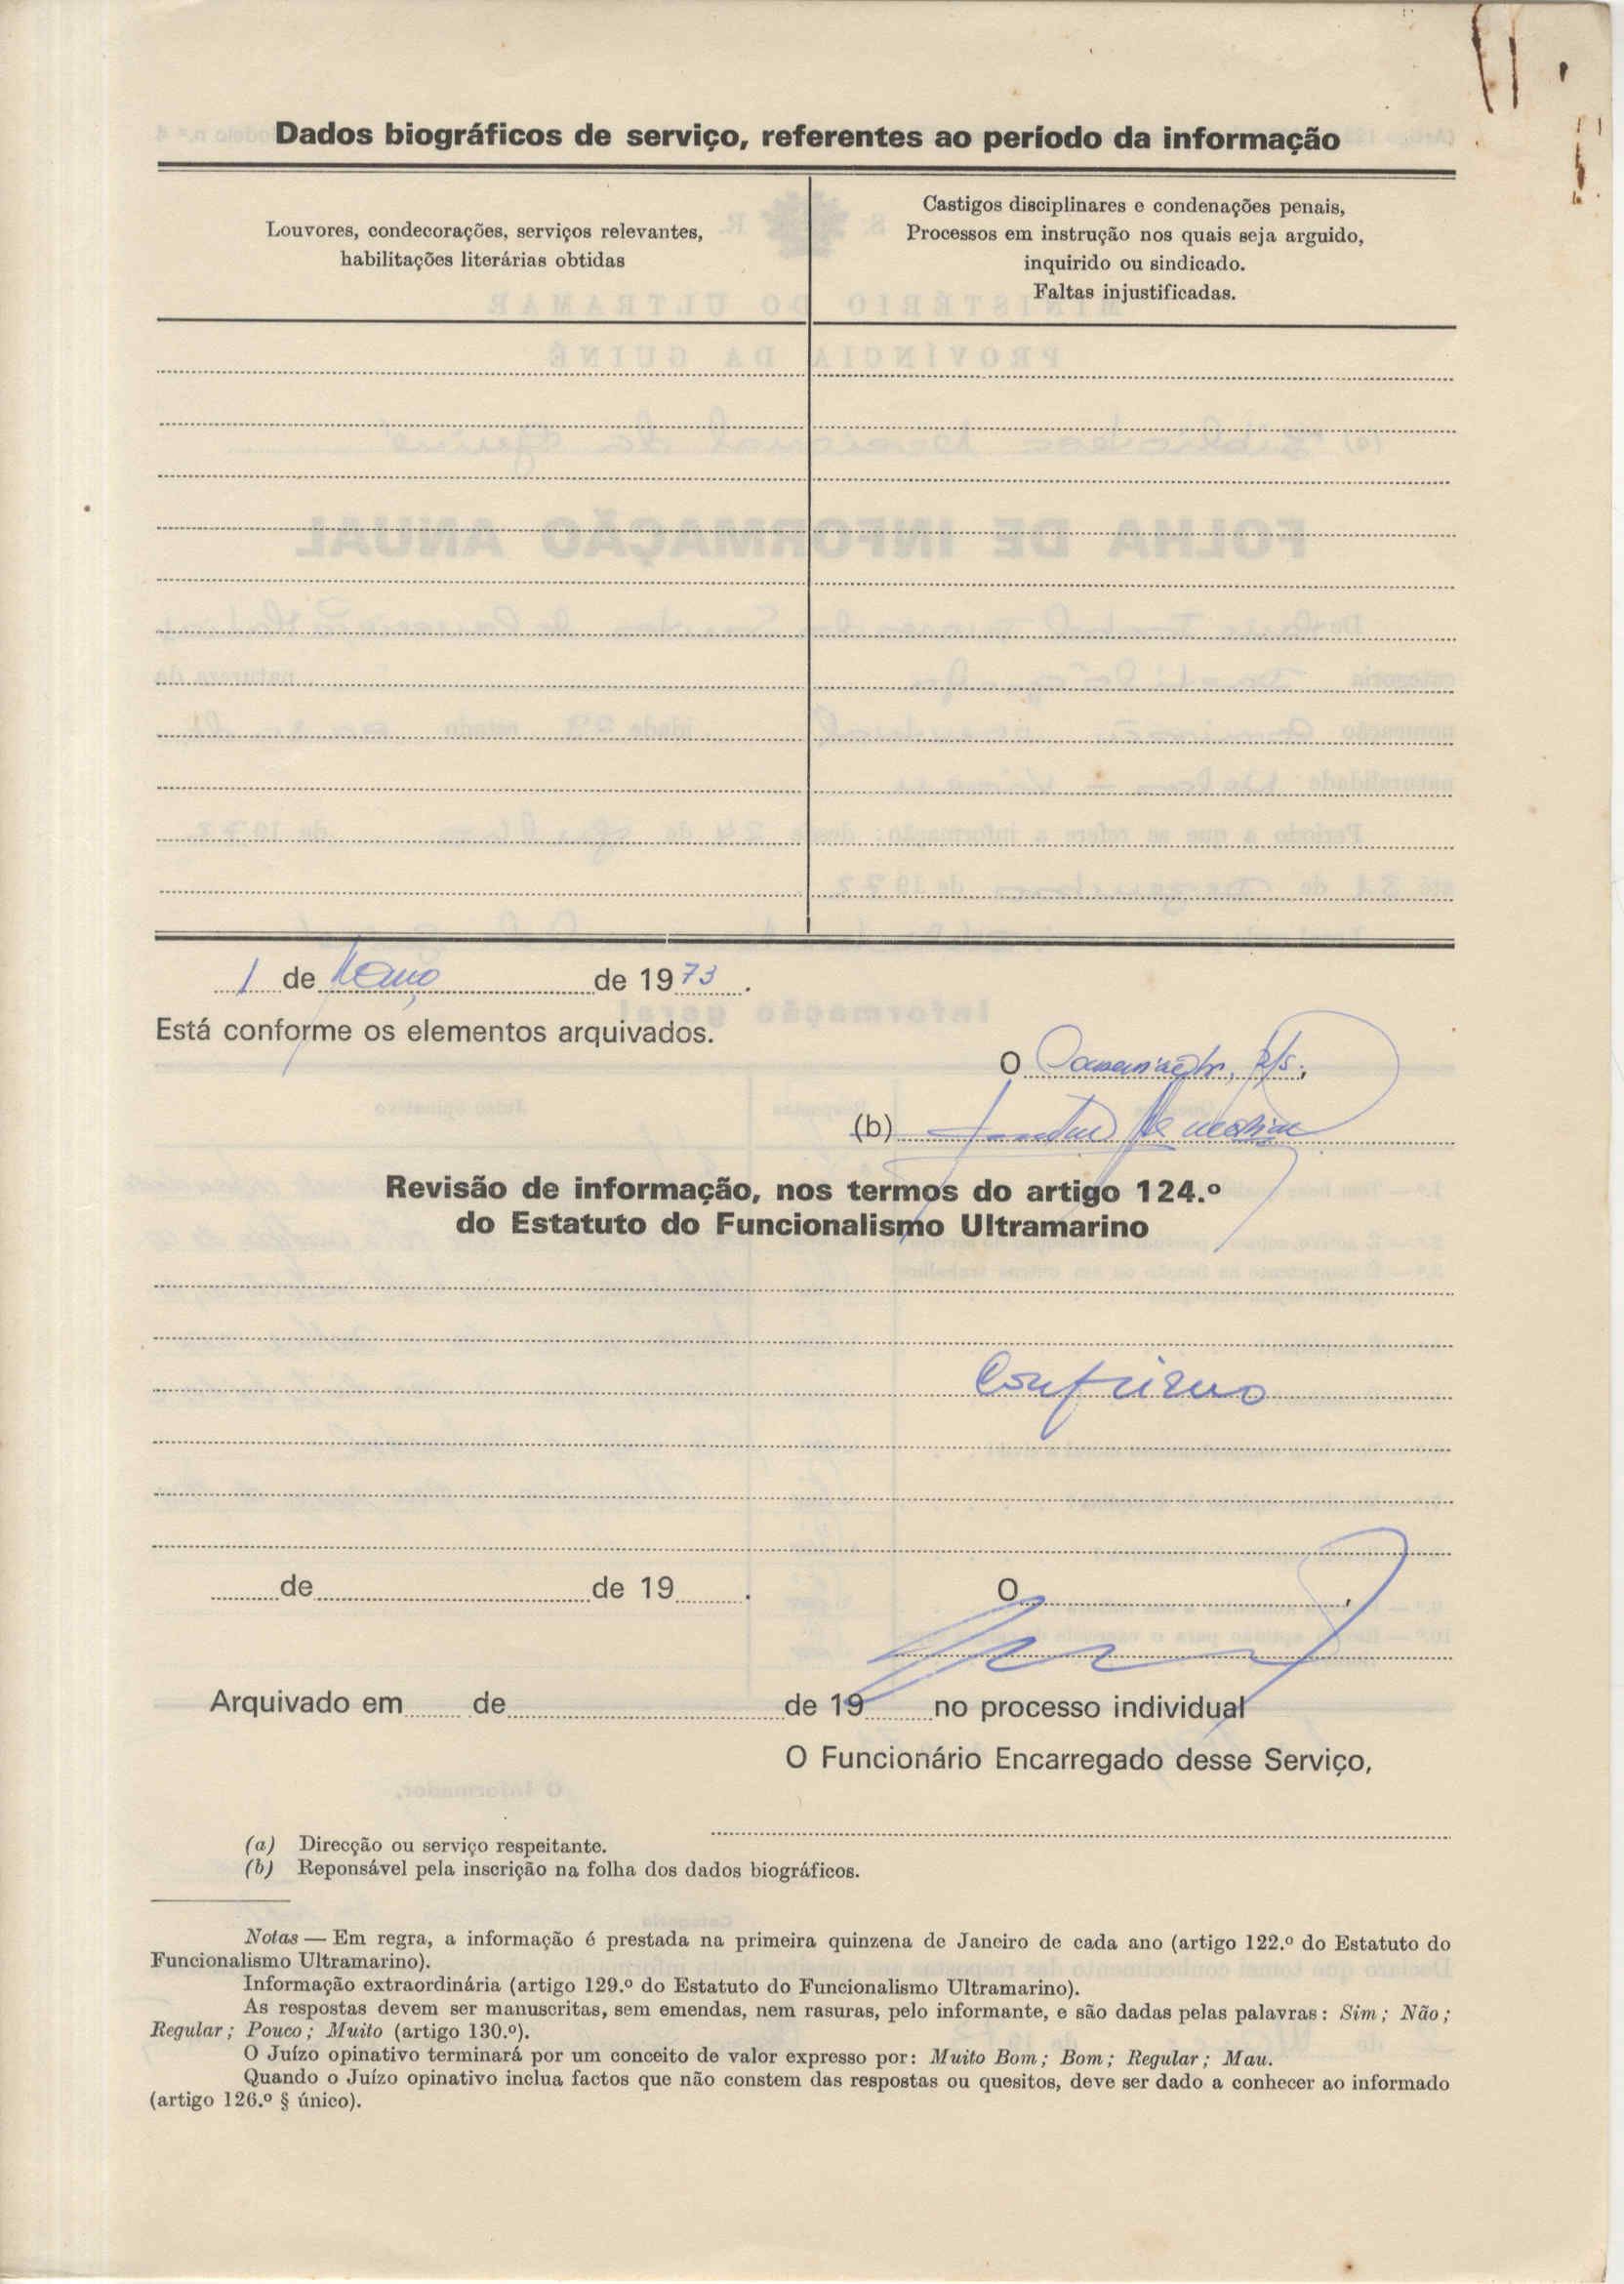 Dados biográficos de serviço, referentes ao período da informação
Louvores, condecorações, serviços relevantes,
habilitações literárias obtidas
Castigos disciplinares e condenações penais,
Processos em instrução nos quais seja arguido,
inquirido ou sindicado.
Faltas injustificadas.
1 de Março de 1973.
Está conforme os elementos arquivados.
O
(b)
Revisão de informação, nos termos do artigo 124.º
do Estatuto do Funcionalismo Ultramarino
Confirmo
de de 19 .
O ,
Arquivado em de de 19 no processo individual
O Funcionário Encarregado desse Serviço,
(a) Direcção ou serviço respeitante.
(b) Reponsável pela inscrição na folha dos dados biográficos.
Notas — Em regra, a informação é prestada na primeira quinzena de Janeiro de cada ano (artigo 122.º do Estatuto do
Funcionalismo Ultramarino).
Informação extraordinária (artigo 129.º do Estatuto do Funcionalismo Ultramarino).
As respostas devem ser manuscritas, sem emendas, nem rasuras, pelo informante, e são dadas pelas palavras: Sim; Não;
Regular; Pouco; Muito (artigo 130.º).
O Juízo opinativo terminará por um conceito de valor expresso por: Muito Bom; Bom; Regular; Mau.
Quando o Juízo opinativo inclua factos que não constem das respostas ou quesitos, deve ser dado a conhecer ao informado
(artigo 126.º § único).